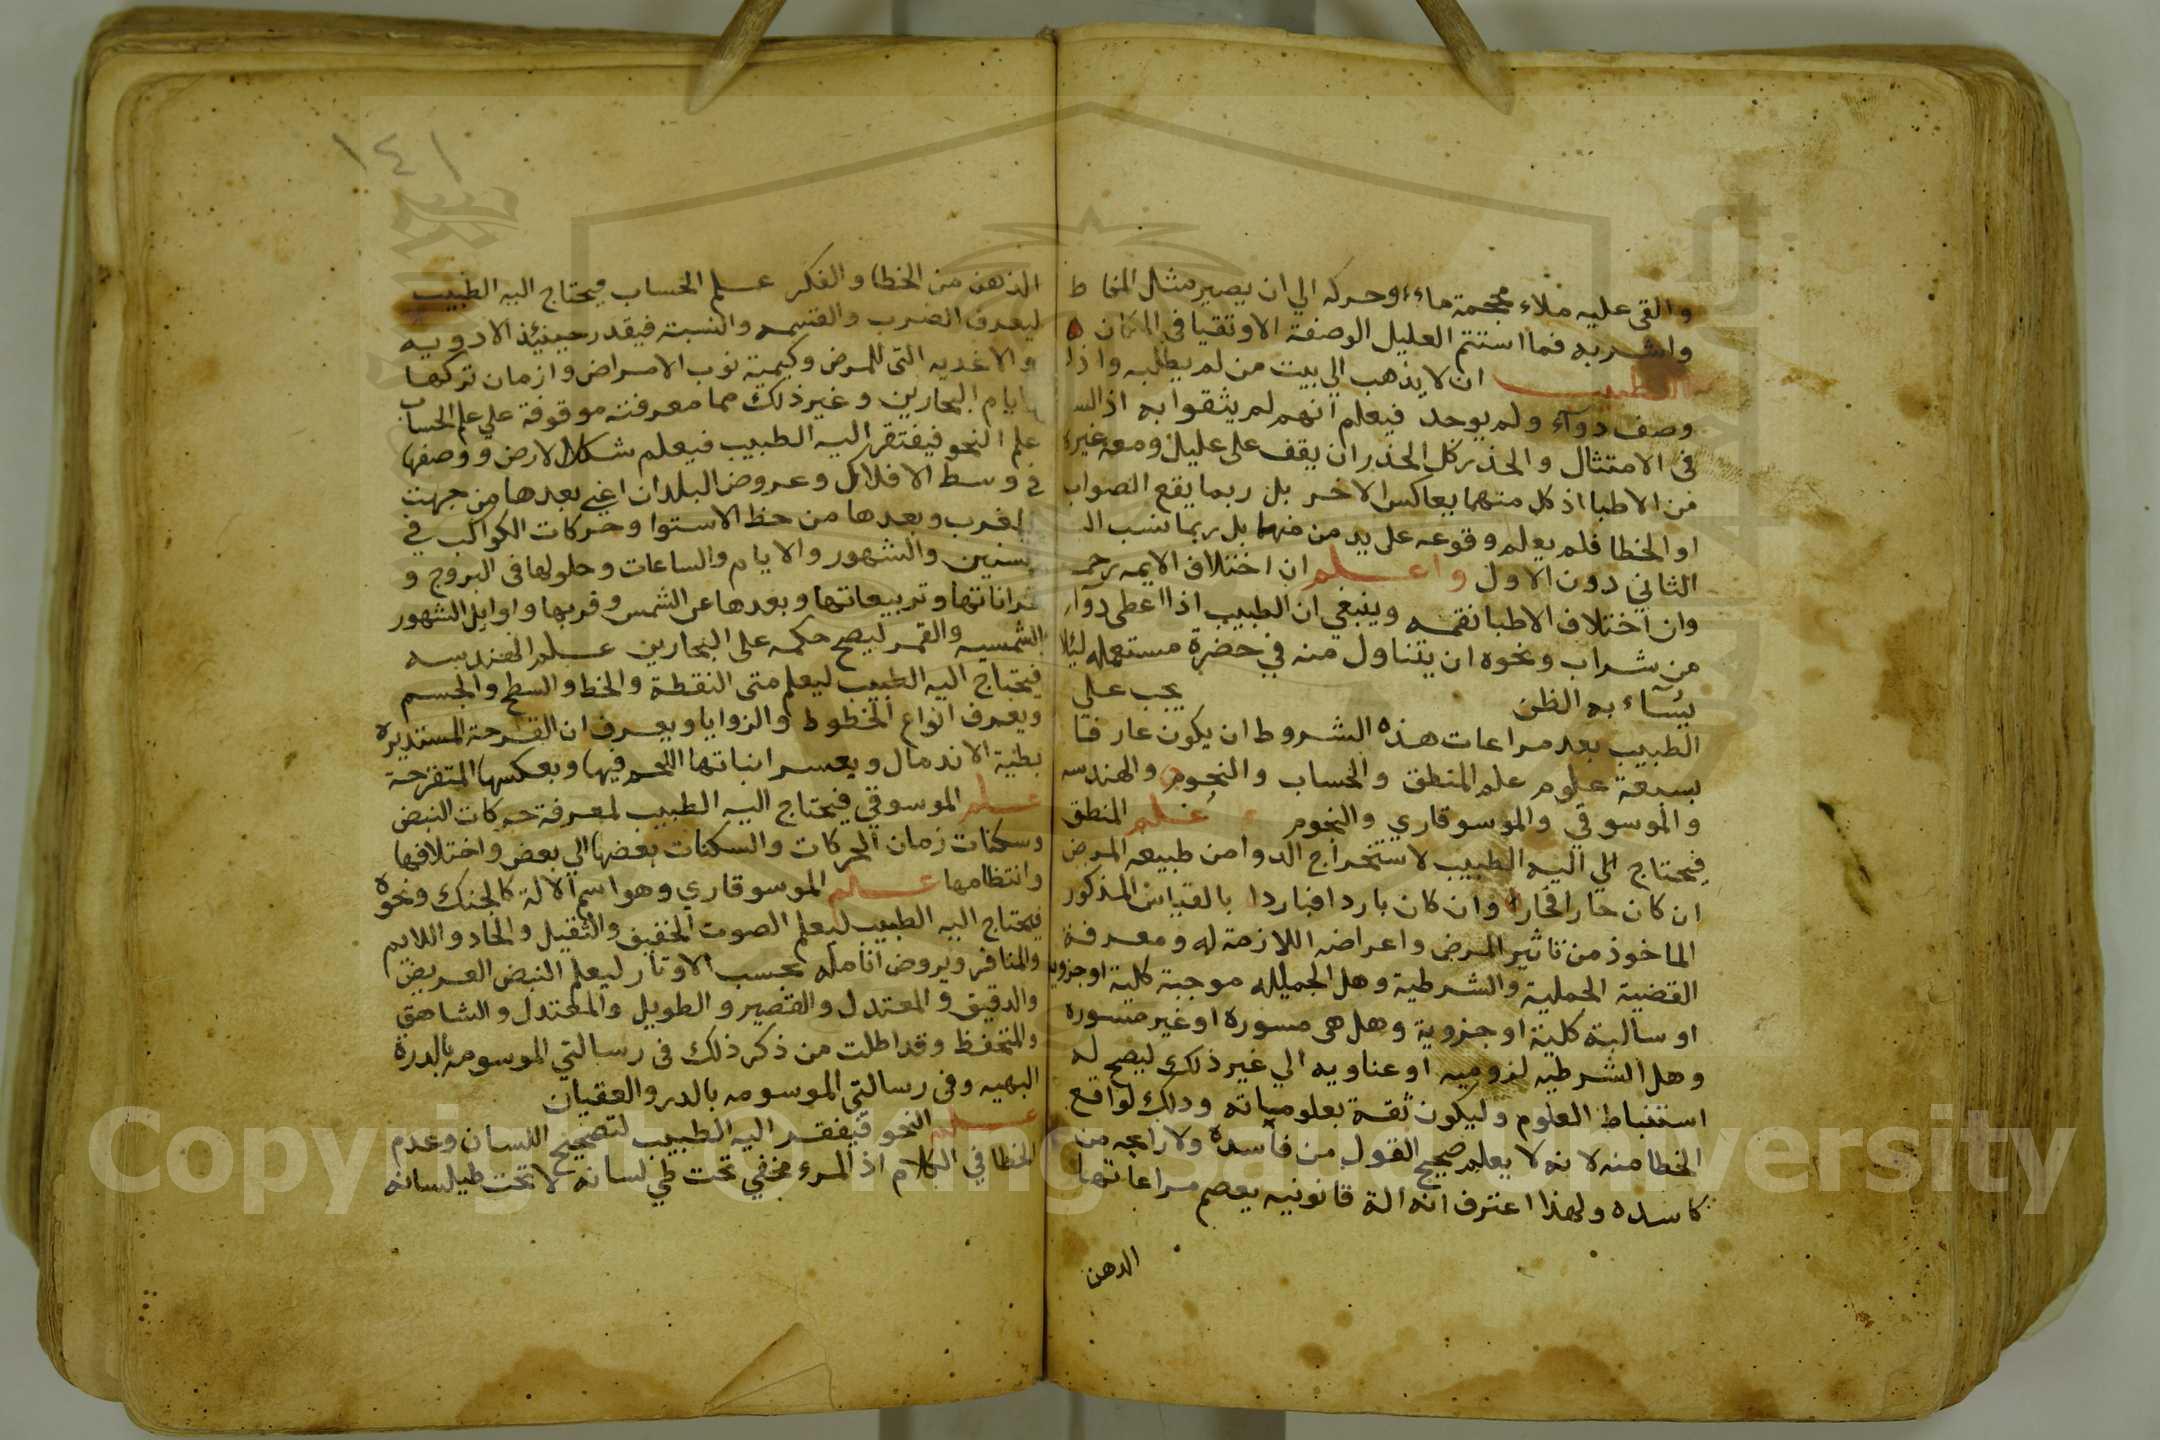 والقى عليه ملاء محجمة ماء وحركه الي ان يصير مثل المخاط
واشربه فما استتم العليل الوصفة الا وتقيا في المكان ه
الطبيب ان لا يذهب الي بيت من لم يطلبه واذا
وصف دوآء ولم يوجد فيعلم انهم لم يثقوا به اذ
في الامتثال والحذر كل الحذر ان يقف على عليل ومعه غيره
من الاطبا اذ كل منهما يعاكس الاخر بل ربما يقع الصواب
او الخطا فلم يعلم وقوعه على يد من منهما بل ربما نسب الـ
الثاني دون الاول واعلم ان اختلاف الايمه رحمـ
وان اختلاف الاطبا نقمه وينبغي ان الطبيب اذا اعطى دوآء
من شراب ونحوه ان يتناول منه في حضرة مستعمله ليلا
يسآء به الظن يجب علي
الطبيب بعد مراعات هذه الشروط ان يكون عارفا
بسبعة علوم علم المنطق والحساب والنجوم والهندسه
والموسوقي والموسوقاري والنجوم علم المنطق
فيحتاج الي اليه الطبيب لاستخراج الدوا من طبيعه المرض
ان كان حارا فحارا وان كان باردا فباردا بالقياس المذكور
الماخوذ من تاثير المرض واعراضه اللازمة له ومعرفة
القضية الحملية والشرطية وهل الجميله موجبة كلية اوجزويه
او سالبة كلية او جزوية وهل هى مسوره او غير مسوره
وهل الشرطيه لزوميه او عناويه الي غير ذلك ليصح له
استنباط العلوم وليكون ثقة بعلومياته وذلك لواقع
الخطا منه لانه لا يعلم صحيح القول من فاسده ولا رابحه من
كاسده ولهذا اعترف انه الة قانونيه يعصم مراعاتها
الدهن
١٤١
الذهن من الخطا والفكر علم الحساب فيحتاج اليه الطبيب
ليعرف الضرب والقسمه والنسبة فيقدر حينيئذ الادويه
والاغديه التى للمرض وكيمية نوب الامراض وازمان تركها
وايام البحارين وغير ذلك مما معرفته موقوفة علي علم الحساب
علم النحو فيفتقر اليه الطبيب فيعلم شكل الارض ووصفها
في وسط الافلاك وعروض البلدان اعني بعدها من جهت
المغرب وبعدها من خط الاستوا وحركات الكواكب في
السنين والشهور والايام والساعات وحلولها في البروج و
قراناتها وتربيعاتها وبعدها عن الشمس وقربها واوايل الشهور
الشمسيه والقمر ليصح حكمه على البحارين علم الهندسه
فيحتاج اليه الطبيب ليعلم متى النقطة والخط والسطح والجسم
ويعرف انواع الخطوط والزوايا ويعرف ان القرحة المستديره
بطية الاندمال ويعسر انباتها اللحم فيها وبعكسها المتقرحة
علم الموسوقي فيحتاج اليه الطبيب لمعرفة حركات النبض
وسكنات زمان الحركات والسكنات بعضها الي بعض واختلافها
وانتظامها علم الموسوقاري وهو اسم الالة كالجنك ونحوه
فيحتاج اليه الطبيب ليعلم الصوت الخفيق والثقيل والحاد واللايم
والمنافر ويروض انامله بحسب الاوتار ليعلم النبض العريض
والدقيق والمعتدل والقصير والطويل والمعتدل والشاهق
والمنخفظ وقد اطلت من ذكر ذلك فى رسالتي الموسومه بالدرة
البهيه وفى رسالتي الموسومه بالدر والعقيان
علم النحو فيفقد اليه الطبيب لتصحيح اللسان وعدم
الخطا في الكلام اذ المرء مخفي تحت طي لسانه لا تحت طيلسانه
Copyright © King Saud University